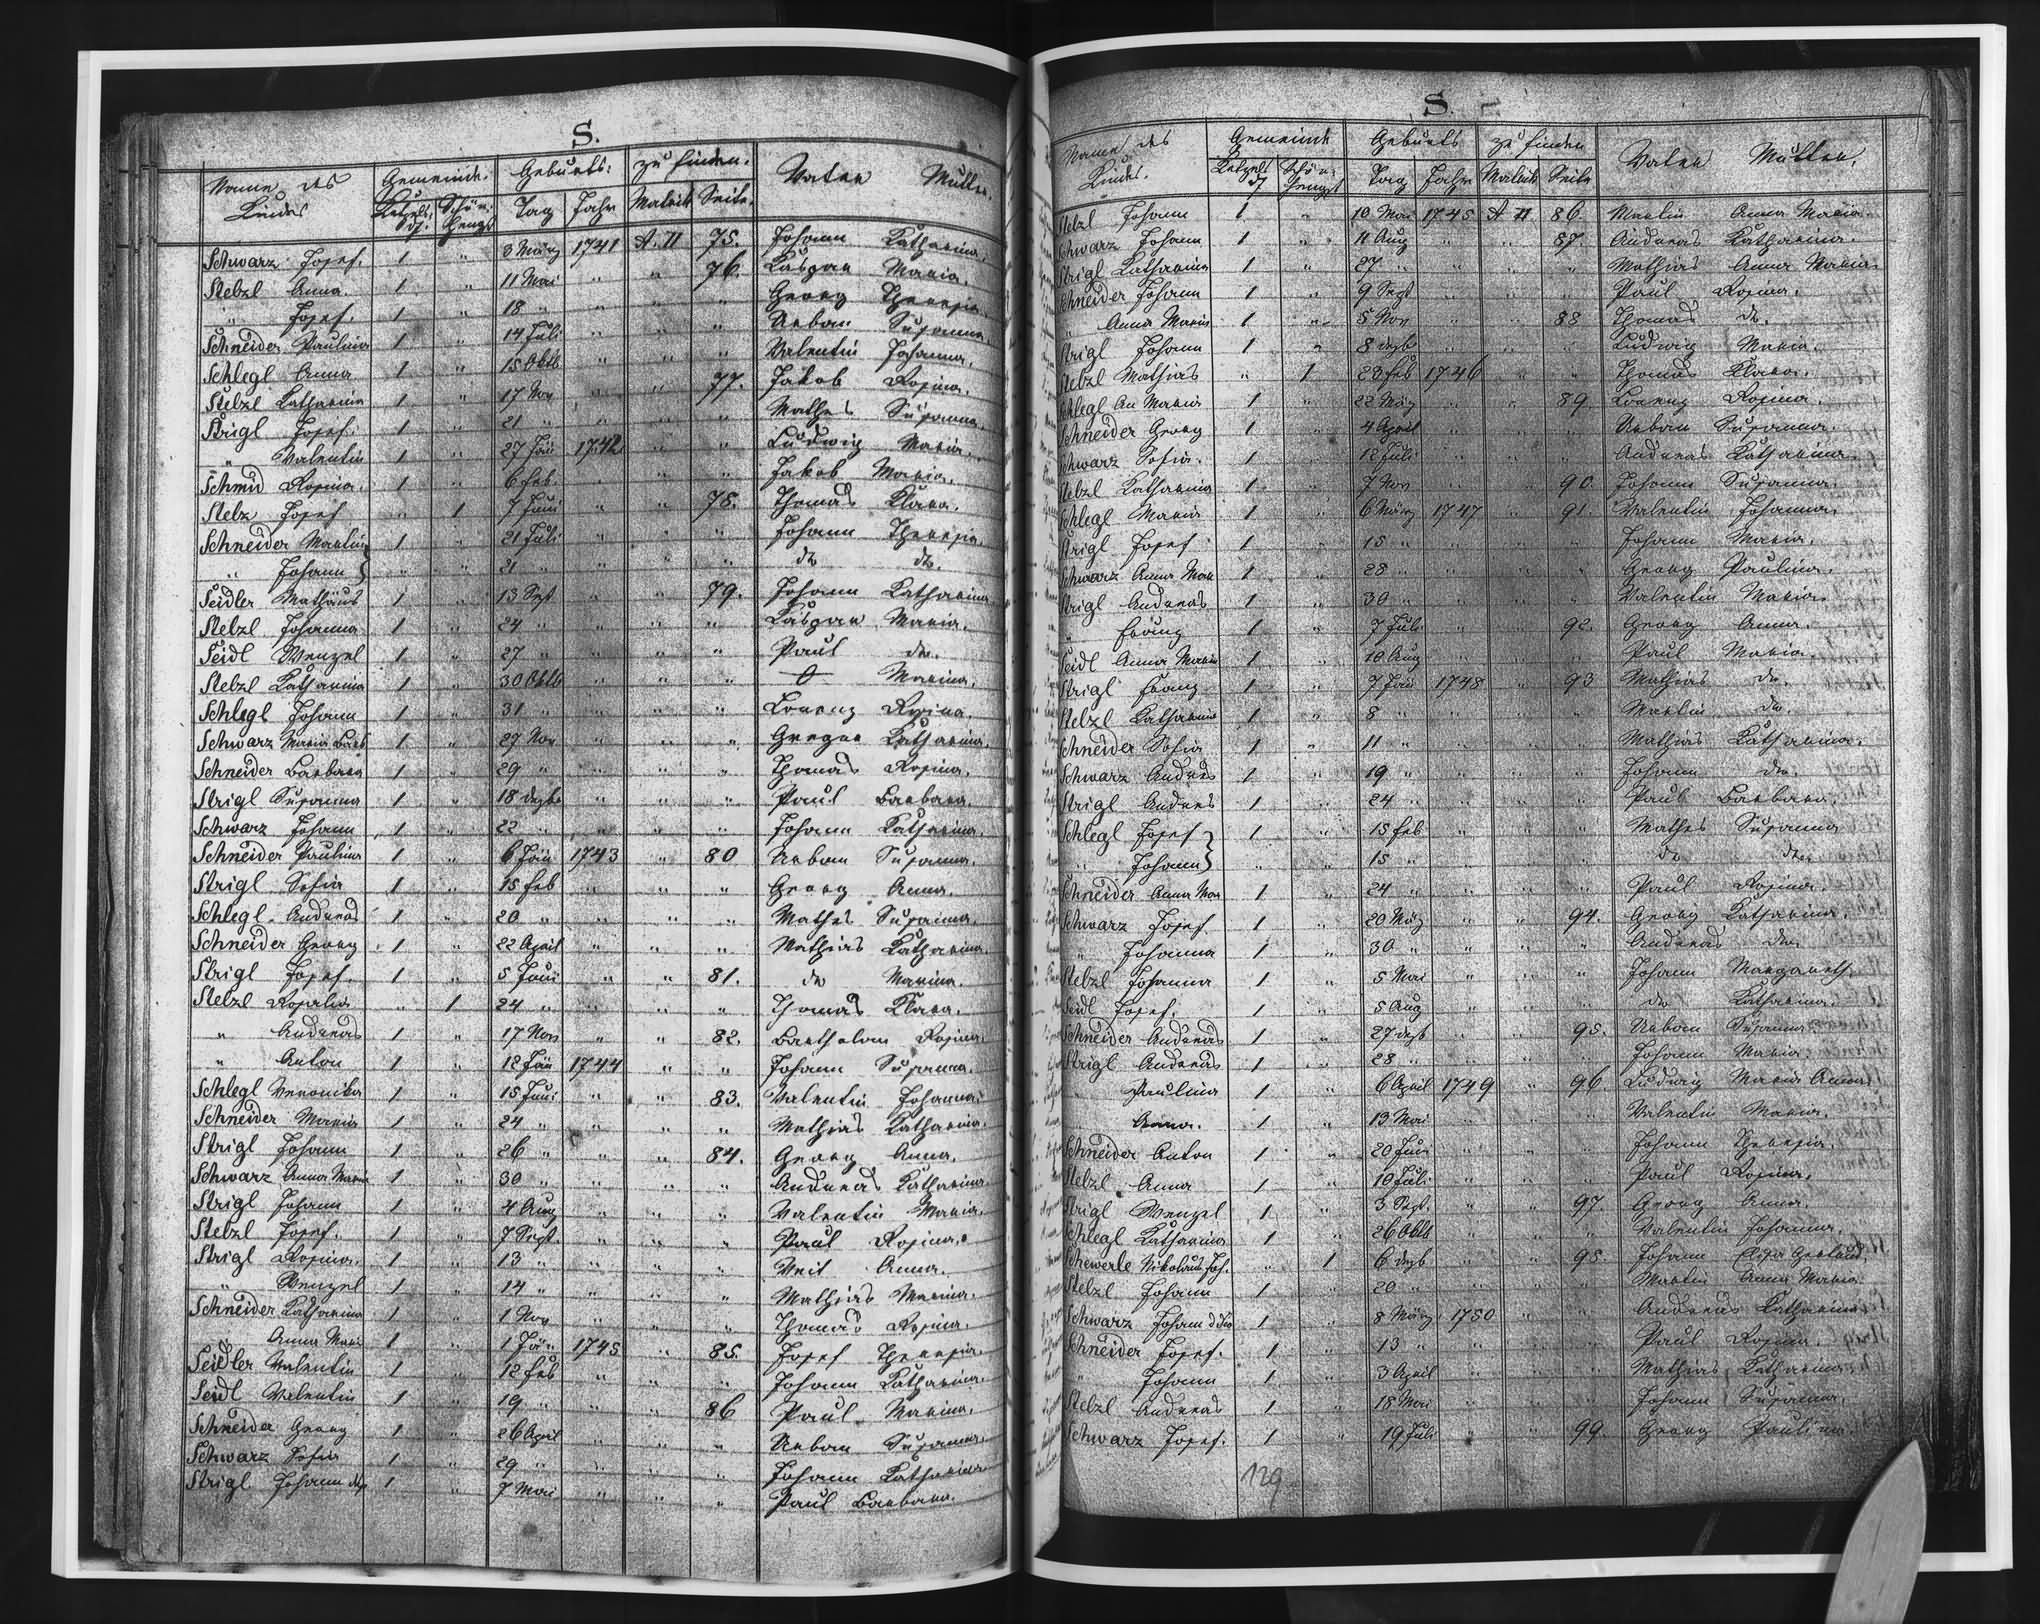 S.
Name des Kindes Gemeinde. Geburts: zu finden. Vater Mutter.
Ketzels df. Schön: hengst Tag Jahr Matrik Seite.
Schwarz Josef. 1 " 3 März 1741 A. II 75. Johann Katharina.
Stebzl Anna. 1 " 11 Mai " " 76. Kaspar Maria.
" Josef. 1 " 18 " " " " Georg Theresia.
Schneider Paulina 1 " 14 Juli " " " Urban Susanna.
Schlegl Anna 1 " 15 Oktb " " " Valentin Johanna.
Stelzl Katharina 1 " 17 Nov " " 77. Jakob Rosina.
Strigl Josef. 1 " 21 " " " " Mathes Susanna.
" Valentin 1 " 27 Jän 1742 " " Ludwig Maria.
Schmid Rosina. 1 " 6 Feb. " " " Jakob Maria.
Stelz Josef " 1 7 Juni " " 78. Thomas Klara.
Schneider Martin 1 " 21 Juli " " " Johann Theresia.
" Johann " " 21 " " " " do do.
Seidler Mathäus 1 " 13 Sept " " 79. Johann Katharina
Stebzl Johanna 1 " 24 " " " " Kaspar Maria.
Seidl Wenzel 1 " 27 " " " " Paul do.
Stebzl Katharina 1 " 30 Oktb " " " O Marina.
Schlegl Johann 1 " 31 " " " " Lorenz Rosina.
Schwarz Maria Barb 1 " 27 Nov " " " Gregor Katharina.
Schneider Barbara 1 " 29 " " " " Thomas Rosina.
Strigl Susanna 1 " 18 Dezbr " " " Paul Barbara.
Schwarz Johann 1 " 22 " " " " Johann Katharina.
Schneider Paulina 1 " 6 Jän 1743 " 80 Urban Susanna.
Strigl Sofia 1 " 15 Feb " " " Georg Anna.
Schlegl Andreas 1 " 20 " " " " Mathes Susanna.
Schneider Georg 1 " 22 April " " " Mathias Katharina.
Strigl Josef. 1 " 5 Juni " " 81. do Marina.
Stelzl Rosalia " 1 24 " " " " Thomas Klara.
" Andreas 1 " 17 Nov " " 82. Bartholom Rosina.
" Anton 1 " 12 Jän 1744 " " Johann Susanna.
Schlegl Veronika 1 " 15 Juni " " 83. Valentin Johanna.
Schneider Maria 1 " 24 " " " " Mathias Katharina.
Strigl Johann 1 " 26 " " " 84. Georg Anna.
Schwarz Anna Maria 1 " 30 " " " " Andreas Katharina
Strigl Johann 1 " 4 Aug " " " Valentin Maria.
Stebzl Josef. 1 " 7 Sept. " " " Paul Rosina.
Strigl Rosina. 1 " 13 " " " " Veit Anna.
" Wenzel 1 " 14 " " " " Mathias Marina.
Schneider Katharina 1 " 1 Nov " " " Thomas Rosina.
" Anna Maria 1 " 1 Jän 1745 " 85. Josef Theresia.
Seidler Valentin 1 " 12 Feb " " " Johann Katharina.
Seidl Valentin 1 " 19 " " " 86 Paul Marina.
Schneider Georg 1 " 26 April " " " Urban Susanna.
Schwarz Sofia 1 " 29 " " " " Johann Katharina
Strigl Johann 1 " 7 Mai " " " Paul Barbara.
S.
Name des Kindes. Gemeinde Geburts zu finden Vater Mutter.
Ketzels df Schön: hengst Tag Jahr Matrik Seite
Stelzl Johann 1 " 10 Mai 1745 A II 86. Martin Anna Maria.
Schwarz Johann 1 " 11 Aug " " 87. Andreas Katharina.
Strigl Katharina 1 " 27 " " " " Mathias Anna Maria.
Schneider Johann 1 " 9 Sept " " " Paul Rosina.
" Anna Maria 1 " 5 Nov " " 88 Thomas do.
Strigl Johann 1 " 8 Dezbr " " " Ludwig Maria.
Stebzl Mathias " 1 28 Feb 1746 " " Thomas Klara.
Schlegl An Maria 1 " 22 März " " 89 Lorenz Rosina.
Schneider Georg 1 " 4 April " " " Urban Susanna.
Schwarz Sofia. 1 " 12 Juli " " " Andreas Katharina.
Stebzl Katharina 1 " 7 Nov " " 90. Johann Susanna.
Schlegl Maria 1 " 6 März 1747 " 91. Valentin Johanna.
Strigl Josef 1 " 15 " " " " Johann Maria.
Schwarz Anna Mar 1 " 28 " " " " Georg Paulina.
Strigl Andreas 1 " 30 " " " " Valentin Maria.
" Franz 1 " 7 Juli " " 92. Georg Anna.
Seidl Anna Maria 1 " 10 Aug " " " Paul Maria.
Strigl Franz 1 " 7 Jän 1748 " 93 Mathias do.
Stelzl Katharina 1 " 8 " " " " Martin do.
Schneider Sofia 1 " 11 " " " " Mathias Katharina.
Schwarz Andreas 1 " 19 " " " " Johann do.
Strigl Andreas 1 " 24 " " " " Paul Barbara.
Schlegl Josef 1 " 15 Feb " " " Mathes Susanna
" Johann " " 15 " " " " do do.
Schneider Anna Mar 1 " 24 " " " " Paul Rosina.
Schwarz Josef 1 " 20 März " " 94. Georg Katharina.
" Johanna 1 " 30 " " " " Andreas do.
Stebzl Johanna 1 " 5 Mai " " " Johann Margareth.
Seidl Josef. 1 " 5 Aug " " " do Katharina.
Schneider Andreas 1 " 27 Dezb " " 95. Urban Susanna
Strigl Andreas 1 " 28 " " " " Johann Maria.
Paulina 1 " 6 April 1749 " 96 Ludwig Maria Anna
Anna. 1 " 13 Mai " " " Valentin Maria.
Schneider Anton 1 " 20 Juni " " " Johann Theresia.
Stebzl Anna 1 " 10 Juli " " " Paul Rosina.
Strigl Wenzel 1 " 3 Sept. " " 97. Georg Anna.
Schlegl Katharina 1 " 26 Oktb " " " Valentin Johanna.
Schewerle Nikolaus Joh. " 1 6 Dezb " " 98. Johann
Stelzl Johann 1 " 20 " " " " Martin Anna Maria.
Schwarz Johann d 1 " 8 März 1750 " " Andreas Katharina
Schneider Josef. 1 " 13 " " " " Paul Rosina.
" Johann 1 " 3 April " " " Mathias Katharina
Stelzl Andreas 1 " 18 Mai " " " Johann Susanna.
Schwarz Josef. 1 " 19 Juli " " 99. Georg Paulina
129